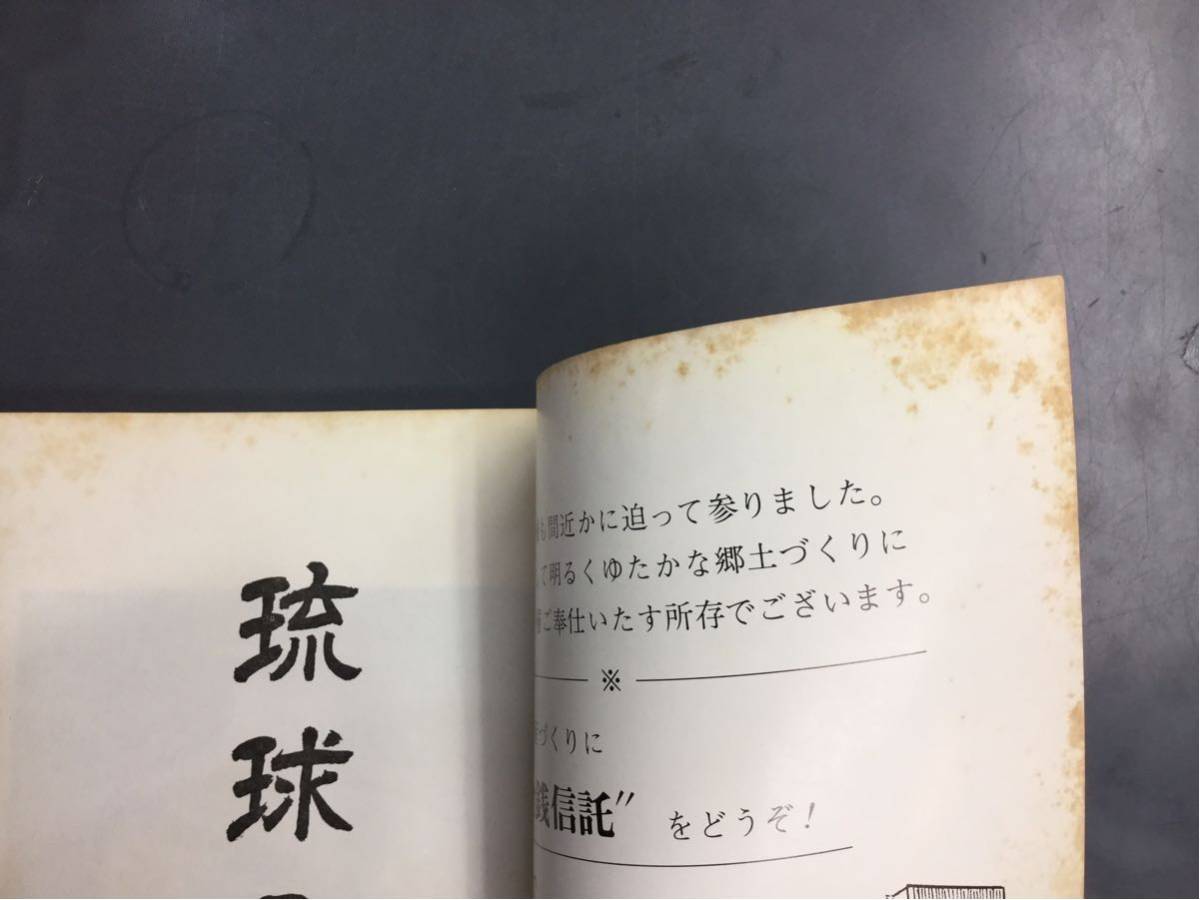 琉球
も間近かに迫って参りました。
て明るくゆたかな郷土づくりに
ご奉仕いたす所存でございます。
※
づくりに
銭信託” をどうぞ！